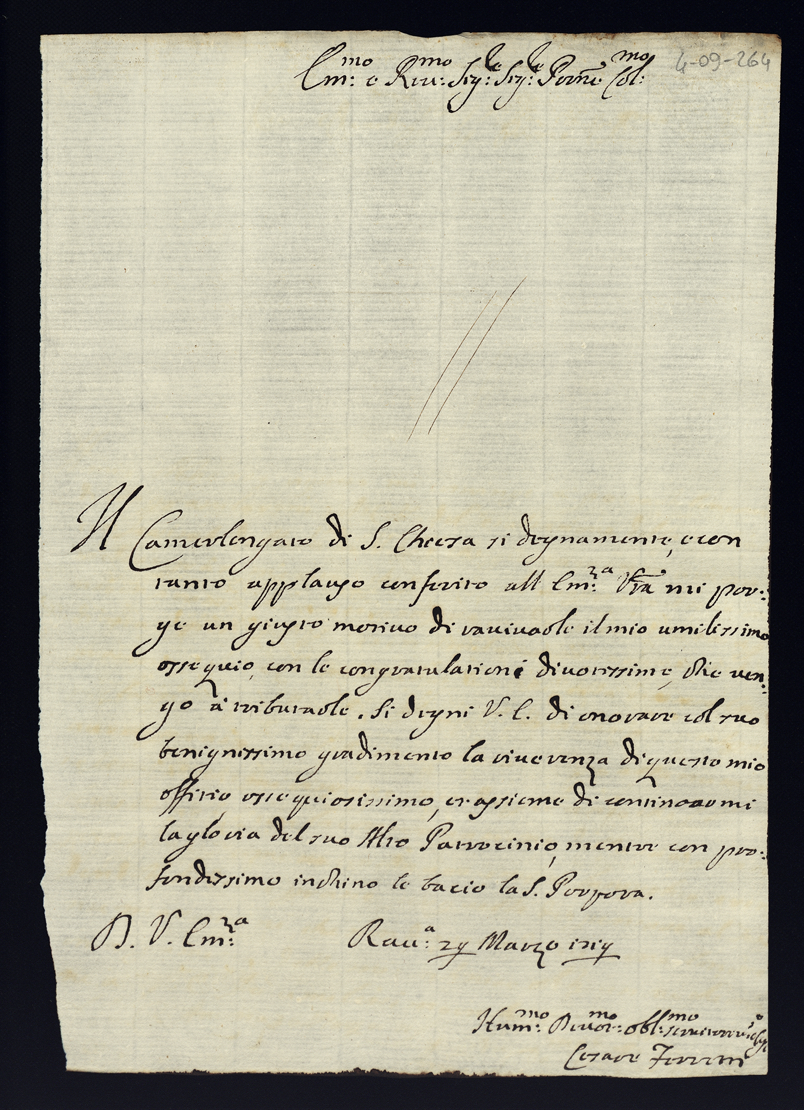 4-09-264
Em:mo e Reu:mo Sig:re Sig:re Pron̄e Col:mo
Il Camerlengato di S. Chiesa si degnamente, e con
tanto applauso conferito all' Em:za Vr̄a mi por:
ge un giusto motivo di ravivarle il mio umilissimo
ossequio, con le congratulationi divotissime, che ven:
go à tributarle. Si degni V. E. di onorare col suo
benignissimo gradimento la riverenza di questo mio
offitio ossequiosissimo, et assieme di continoarmi
la gloria del suo Alto Patrocinio, mentre con pro:
fondissimo inchino le bacio la S. Porpora.
D. V. Em:za
Rau:a 29 Marzo 1719
Hum:mo Deuot:mo obl:mo
Cesare